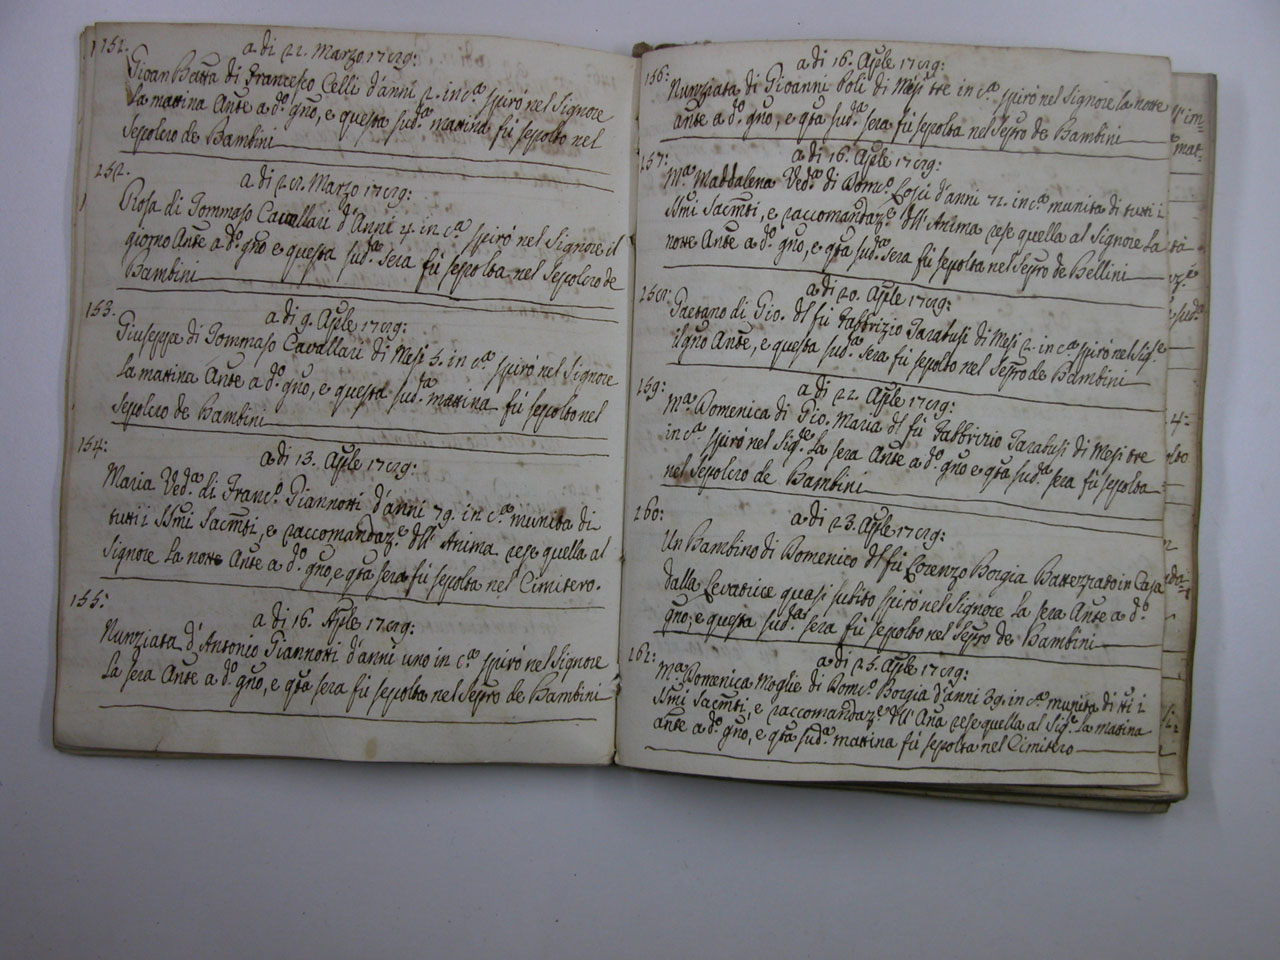 151.
a di 22. Marzo 1789:
GioanBatta di Francesco Celli d'anni 2. in c.ª spirò nel Signore
la mattina Ante a d.º gño, e questa sud.ª mattina fù sepolto nel
Sepolcro de Bambini
152.
a di 28. Marzo 1789:
Rosa di Tommaso Cavallari d'Anni 4. in c.ª spirò nel Signore il
giorno Ante a d.º gño e questa sud.ª sera fù sepolta nel Sepolcro de
Bambini
153.
a di 9. Aple 1789:
Giuseppe di Tommaso Cavallari di Mesi 5. in c.ª spirò nel Signore
la mattina Ante a d.º gño, e questa sud.ª mattina fù sepolto nel
Sepolcro de Bambini
154:
a di 13. Aple 1789:
Maria Ved.ª di Franc.º Giannotti d'anni 79. in c.ª munita di
tutti i SSmi Sacmti, e raccomandaz.e dll' Anima rese quella al
Signore la notte Ante a d.º gño, e qta sera fù sepolta nel Cimitero.
155:
a di 16. Aple 1789:
Nunziata d'Antonio Giannotti d'anni uno in c.ª spirò nel Signore
la sera Ante a d.º gño, e qta sera fù sepolta nel Sepro de Bambini
156:
a di 16. Aple 1789:
Nunziata di Gioanni Poli di Mesi tre in c.ª spirò nel Signore la notte
Ante a d.º gño, e qta sud.ª sera fù sepolta nel Sepro de Bambini
157:
a di 16. Aple 1789:
M.ª Maddalena Ved.ª di Dom.co d'anni 72. in c.ª munita di tutti i
SSmi Sacmti, e raccomandaz.e dll' Anima rese quella al Signore la
notte Ante a d.º gño, e qta sud.ª sera fù sepolta nel Sepro de Bellini
158:
a di 20. Aple 1789:
Gaetano di Gio. dl fù Fabbrizio Tarabusi di Mesi 2. in c.ª spirò nel Sig.e
il gño Ante, e questa sud.ª sera fù sepolto nel Sepro de Bambini
159:
a di 22. Aple 1789:
M.ª Domenica di Gio. Maria dl fù Fabbrizio Tarabusi di Mesi tre
in c.ª spirò nel Sig.e la sera Ante a d.º gño e qta sud.ª sera fù sepolta
nel Sepolcro de Bambini
160:
a di 23. Aple 1789:
Un Bambino di Domenico dl fù Lorenzo Borgia Battezzato in Casa
dalla Levatrice quasi subito spirò nel Signore la sera Ante a d.º
gño, e questa sud.ª sera fù sepolto nel Sepro de Bambini
161:
a di 25. Aple 1789:
M.ª Domenica Moglie di Dom.co Borgia d'anni 39. in c.ª munita di tti i
SSmi Sacmti, e raccomandaz.e dll' Ana rese quella al Sig.e la mattina
ante a d.º gño, e qta sud.ª mattina fù sepolta nel Cimitero